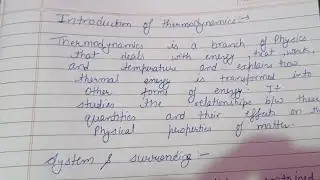 Introduction of thermodynamics :→
Thermodynamics is a branch of Physics
that deals with energy, heat, work,
and temperature and explains how
thermal energy is transformed into
other forms of energy. It
studies the relationships b/w these
quantities and their effects on the
Physical properties of matter.
System & surronding :-